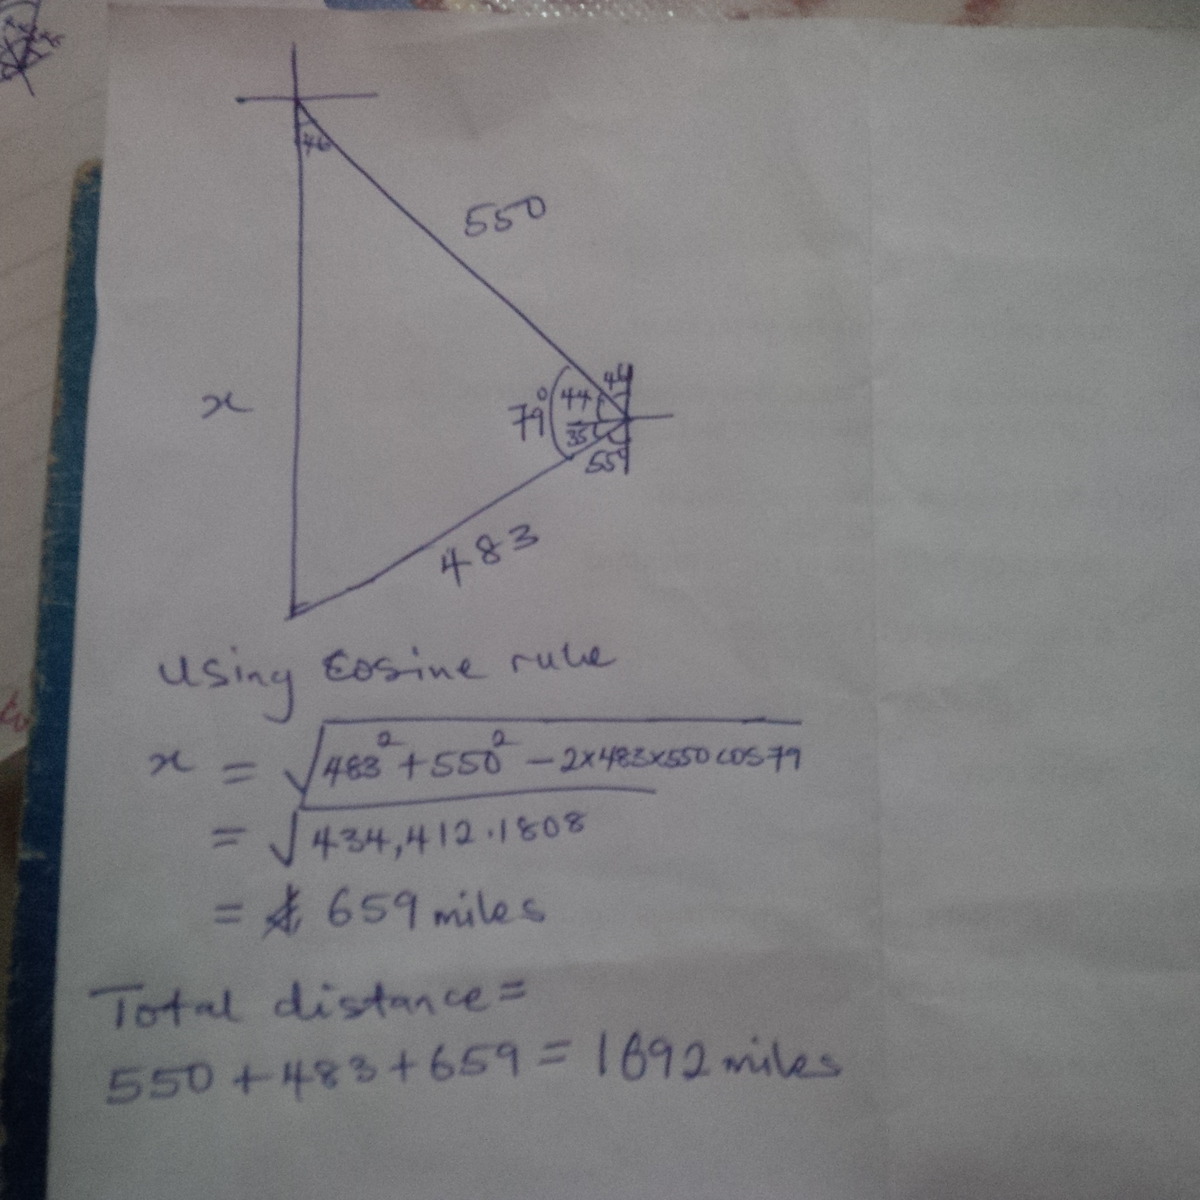 46
550
x
79° 44 46
35
55°
483
Using Cosine rule
x = √483² + 550² – 2×483×550 cos 79
= √434,412.1808
= 659 miles
Total distance =
550 + 483 + 659 = 1692 miles